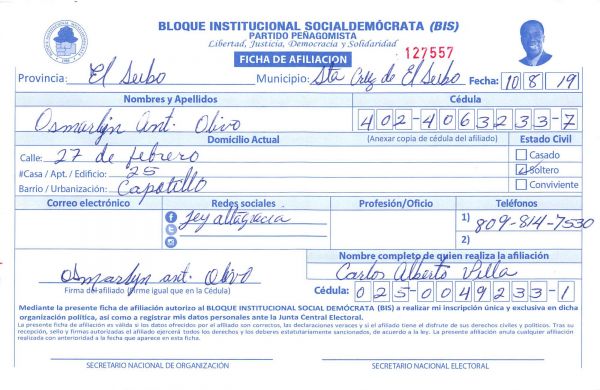 BLOQUE INSTITUCIONAL SOCIALDEMÓCRATA (BIS)
PARTIDO PEÑAGOMISTA
Libertad, Justicia, Democracia y Solidaridad
127557
FICHA DE AFILIACIÓN
Provincia: El Seibo Municipio: Sta Cruz de El Seibo Fecha: 10 8 19
Nombres y Apellidos Cédula
Osmarlyn Ant. Olivo 402-4063233-7
Domicilio Actual (Anexar copia de cédula del afiliado) Estado Civil
Calle: 27 de febrero
#Casa / Apt. / Edificio: 25
Barrio / Urbanización: Capotillo
Casado
Soltero
Conviviente
Correo electrónico Redes sociales Profesión/Oficio Teléfonos
Jey altagracia
1) 809-814-7530
2)
Nombre completo de quien realiza la afiliación
Osmarlyn ant. Olivo Carlos Alberto Villa
Firma del afiliado (Firme igual que en la Cédula) Cédula: 025-0049233-1
Mediante la presente ficha de afiliación autorizo al BLOQUE INSTITUCIONAL SOCIAL DEMÓCRATA (BIS) a realizar mi inscripción única y exclusiva en dicha
organización política, así como a registrar mis datos personales ante la Junta Central Electoral.
La presente ficha de afiliación es válida si los datos ofrecidos por el afiliado son correctos, las declaraciones veraces y si el afiliado tiene el disfrute de sus derechos civiles y políticos. Tras su
recepción, sello y firmas autorizadas el afiliado ejercerá todos los derechos y los deberes estatutariamente sancionados, de acuerdo a la ley. La presente afiliación anula cualquier afiliación
realizada con anterioridad a la fecha que aparece en esta ficha.
SECRETARIO NACIONAL DE ORGANIZACIÓN SECRETARIO NACIONAL ELECTORAL